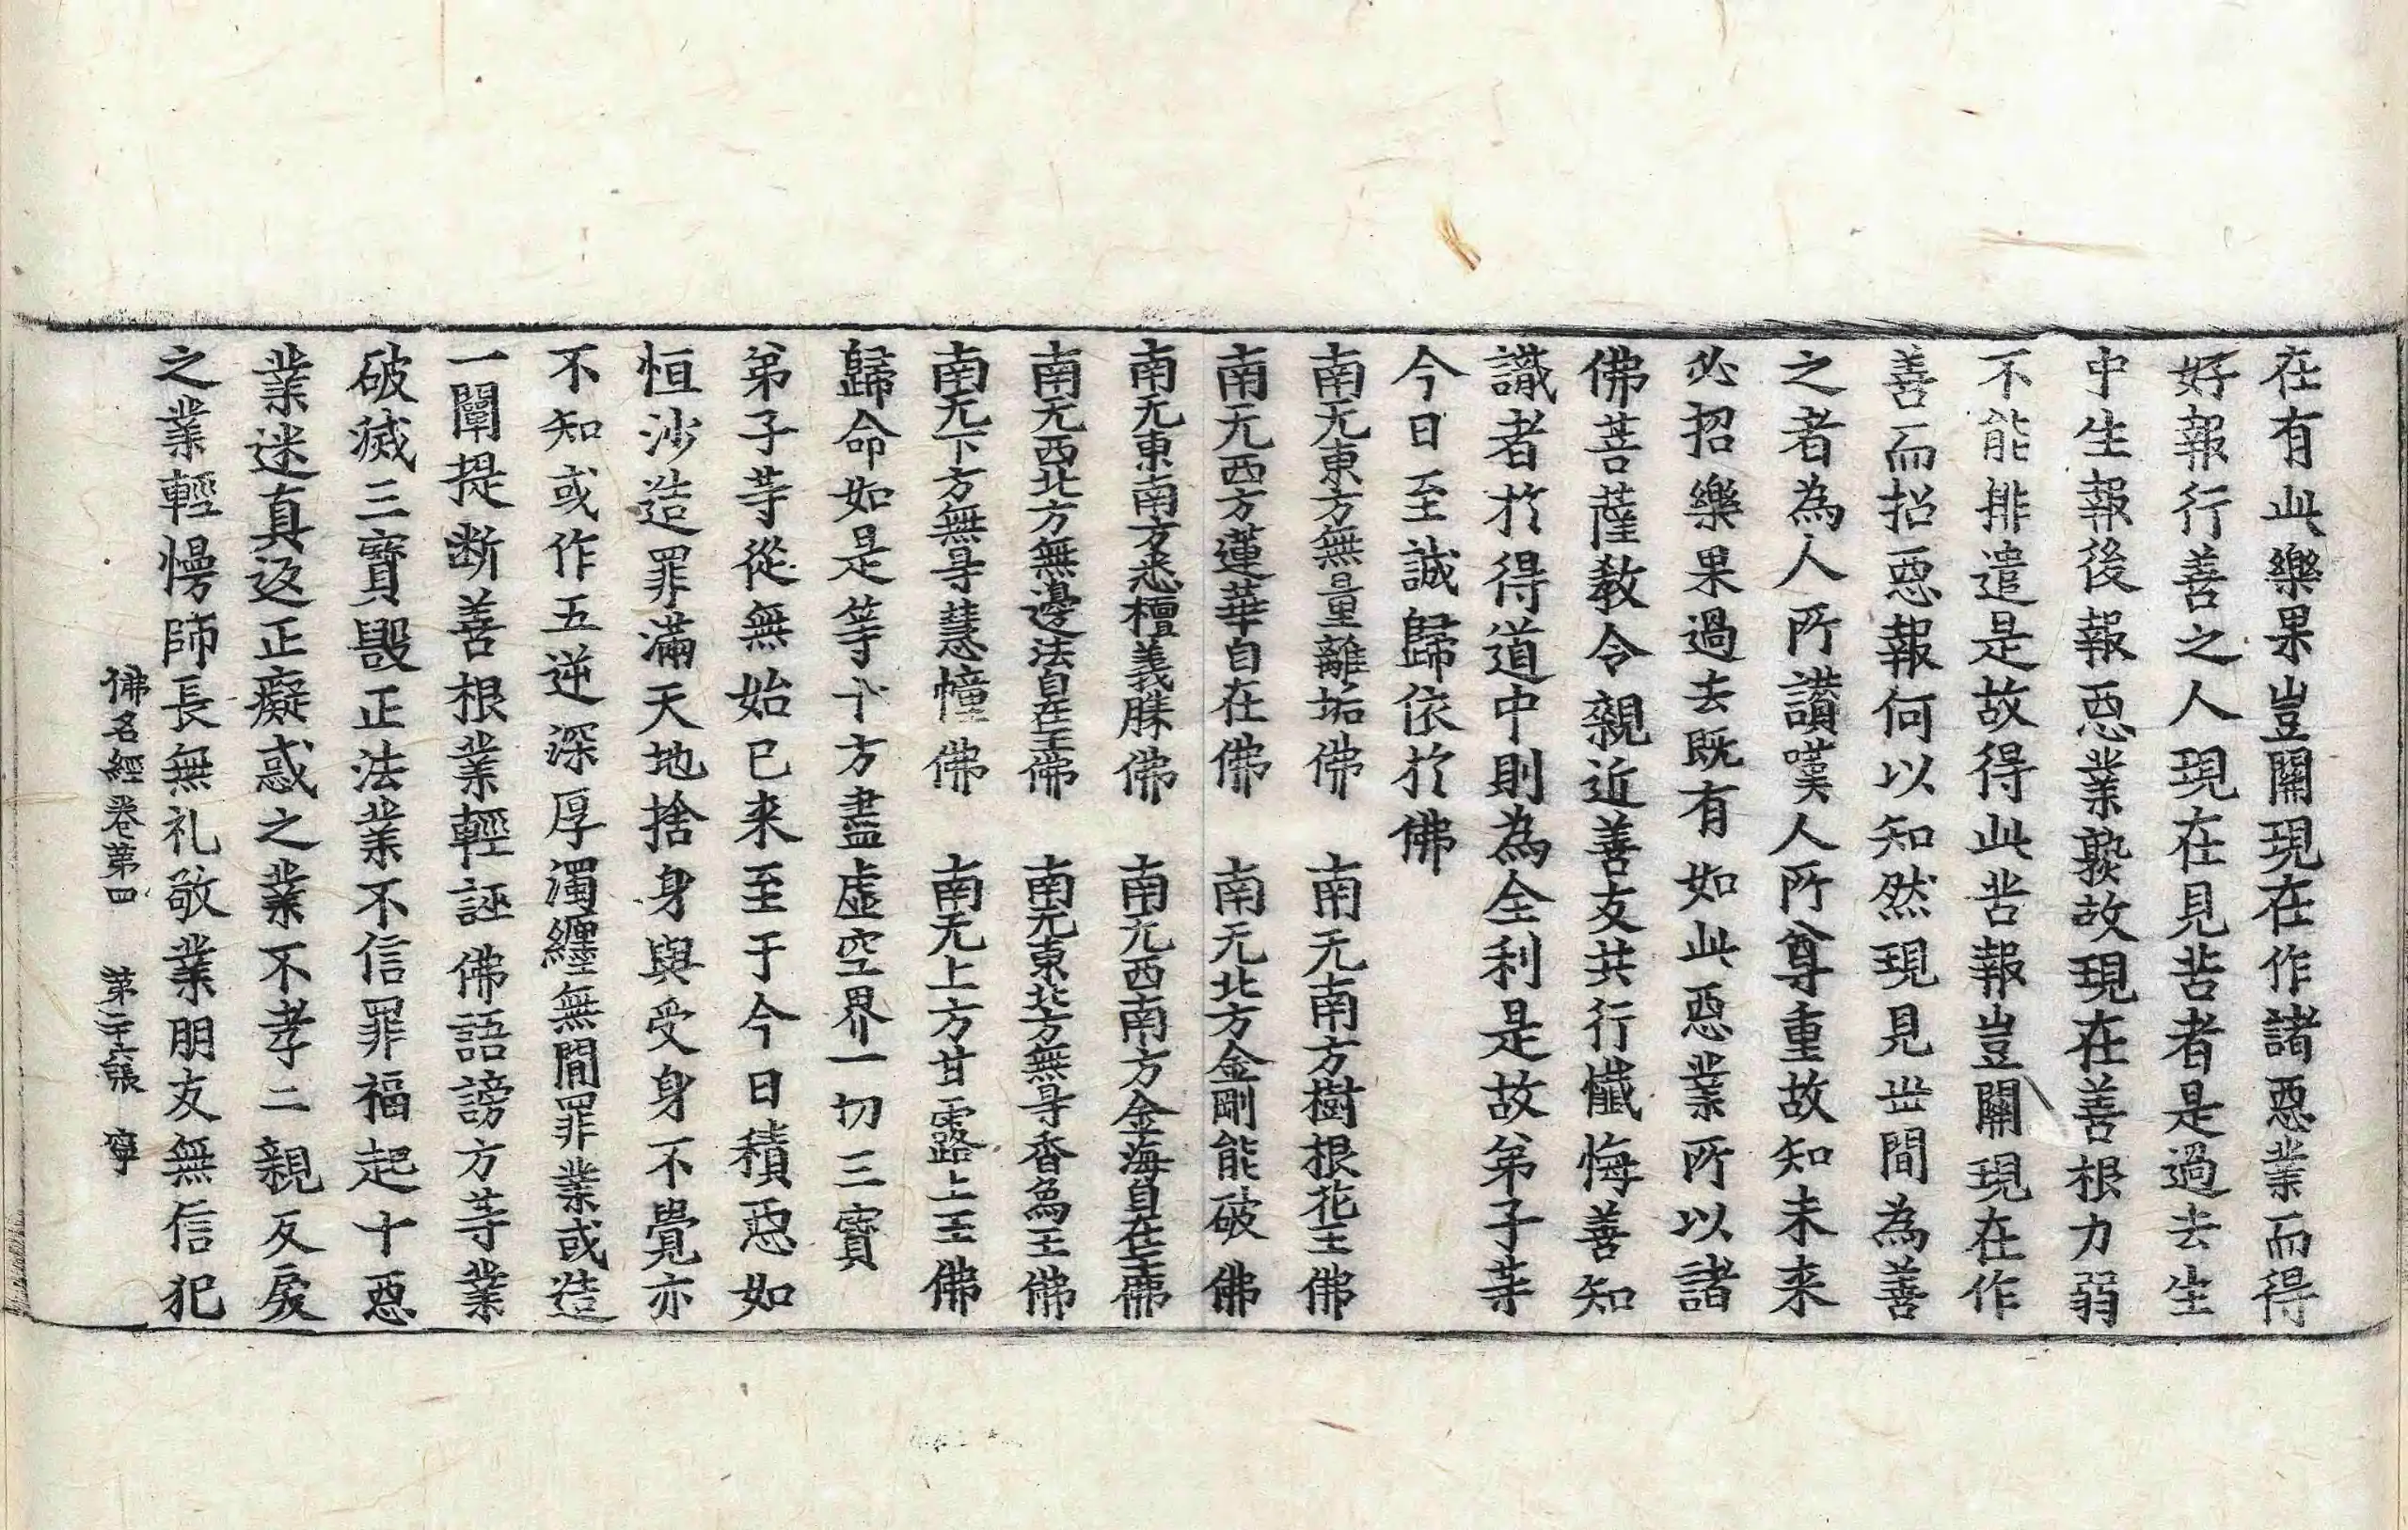 在有此樂果豈關現在作諸惡業而得
好報行善之人現在見苦者是過去生
中生報後報惡業熟故現在善根力弱
不能排遣是故得此苦報豈關現在作
善而招惡報何以知然現見世間為善
之者為人所讃嘆人所尊重故知未来
必招樂果過去既有如此惡業所以諸
佛菩薩教令親近善友共行懺悔善知
識者於得道中則為全利是故弟子等
今日至誠歸依於佛
南无東方無量離垢佛　南无南方樹根花王佛
南无西方蓮華自在佛　南无北方金剛能破佛
南无東南方悉檀義勝佛　南无西南方金海自在王佛
南无西北方無邊法自在王佛　南无東北方無㝵香爲王佛
南无下方無㝵慧幢佛　南无上方甘露上王佛
歸命如是等十方盡虛空界一切三寶
弟子等從無始已来至于今日積惡如
恒沙造罪滿天地捨身與受身不覺亦
不知或作五逆深厚濁纏無閒罪業或造
一闡提断善根業輕誣佛語謗方等業
破滅三寶毀正法業不信罪福起十惡
業迷真返正癡惑之業不孝二親反戾
之業輕慢師長無礼敬業朋友無信犯
佛名經卷第四　第二十六張　寧